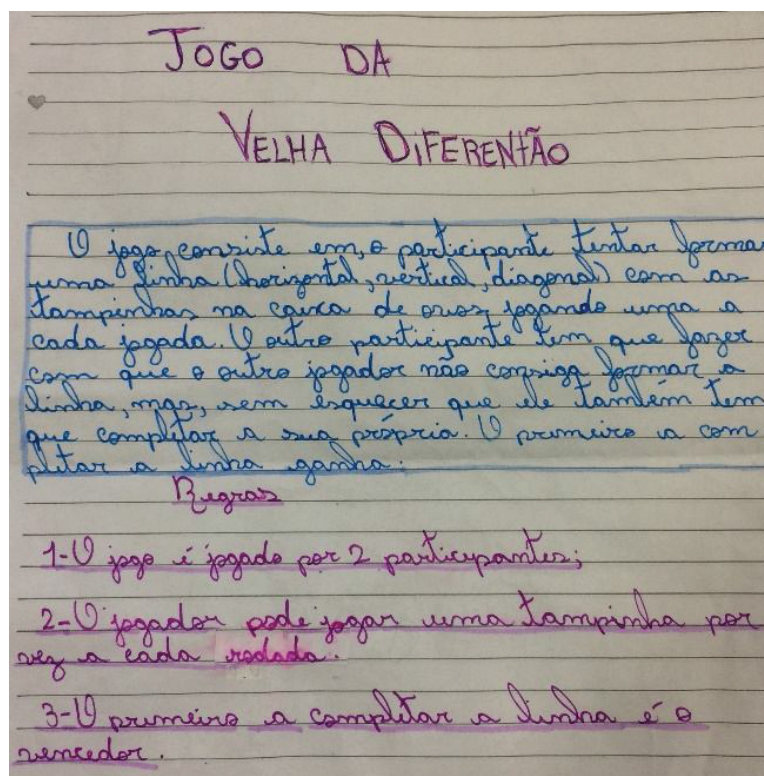 JOGO DA
VELHA DIFERENTÃO
O jogo consiste em, o participante tentar forma
uma linha (horizontal, vertical, diagonal) com as
tampinhas na caixa de ovos jogando uma a
cada jogada. O outro participante tem que fazer
com que o outro jogador não consiga formar a
linha, mas, sem esquecer que ele também tem
que completar a sua própria. O primeiro a com
pletar a linha ganha.
Regras
1-O jogo é jogado por 2 participantes;
2-O jogador pode jogar uma tampinha por
vez a cada rodada.
3-O primeiro a completar a linha é o
vencedor.